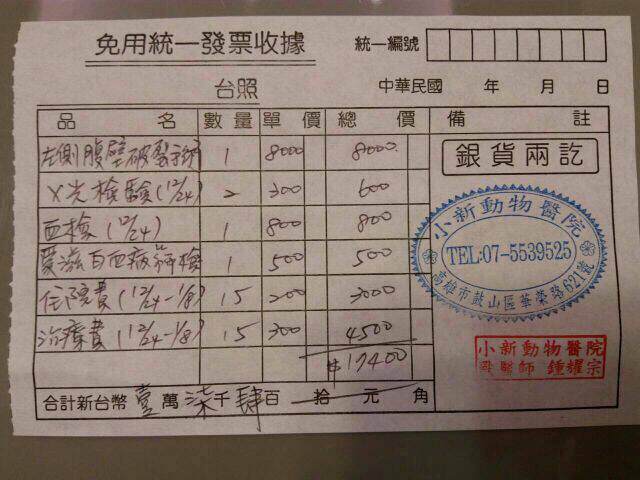 免用統一發票收據 統一編號
台照 中華民國 年 月 日
品 名 數量 單 價 總 價 備 註
左側腹壁破裂手術 1 8000 8000
X光檢驗(12/24) 2 300 600
血檢(12/24) 1 800 800
愛滋白血病篩檢 1 500 500
住院費(12/24-1/8) 15 200 3000
治療費(12/24-1/8) 15 300 4500
17400
合計新台幣 壹 萬 柒 千 肆 百 拾 元 角
銀貨兩訖
小新動物醫院
TEL:07-5539525
高雄市鼓山區華榮路621號
小新動物醫院
獸醫師 鍾耀宗